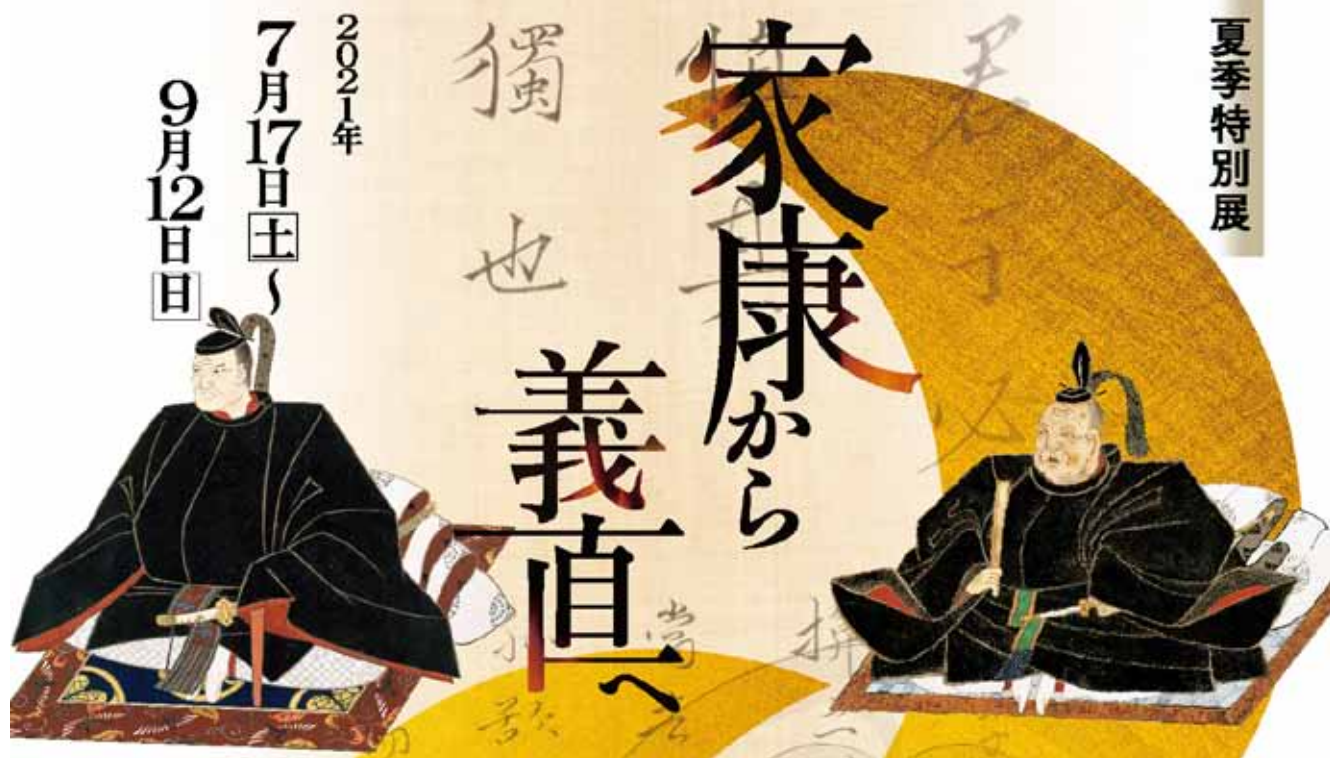 夏季特別展
家康から
義直へ
2021年
7月17日土～
9月12日日
獨也